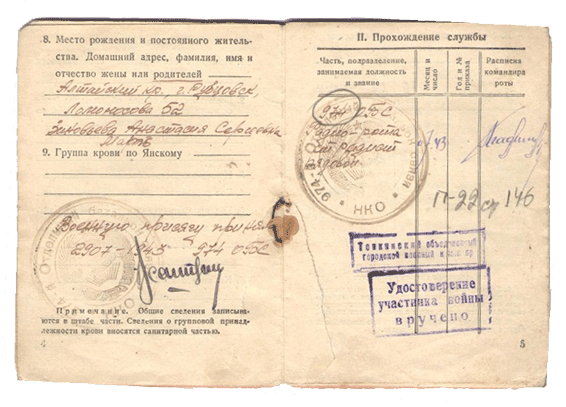 8. Место рождения и постоянного житель-
ства. Домашний адрес, фамилия, имя и
отчество жены или родителей
Алтайский кр. г. Рубцовск
Ломоносова 52
Зиновьева Анастасия Сергеевна
Мать
9. Группа крови по Янскому
Военную присягу принял
2907-1943 974 ОБС
Примечание. Общие сведения записы-
ваются в штабе части. Сведения о групповой принад-
лежности крови вносятся санитарной частью.
4
II. Прохождение службы
Часть, подразделение,
занимаемая должность
и звание
Месяц и
число
Год и №
приказа
Расписка
командира
роты
974 ОБС
Радио-рота
рядовой
43
974-й
НКО
П-22 ср 146
городской военный
Удостоверение
участника войны
вручено
5